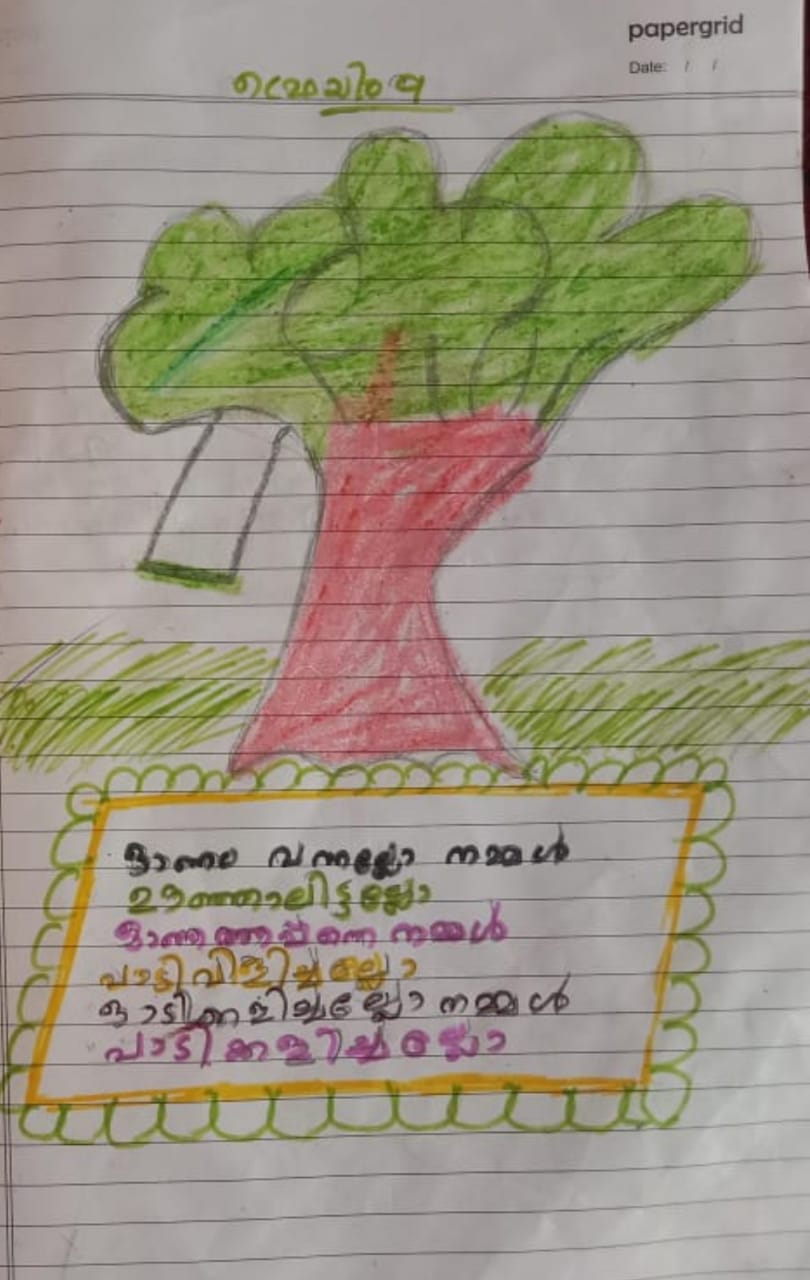 papergrid
Date: / /
ഓണം വന്നല്ലോ നമ്മൾ
ഊഞ്ഞാലിട്ടല്ലോ
ഓണത്തപ്പനെ നമ്മൾ
പാടിവിളിച്ചല്ലോ
ഓടിക്കളിച്ചല്ലോ നമ്മൾ
പാടിക്കളിച്ചല്ലോ